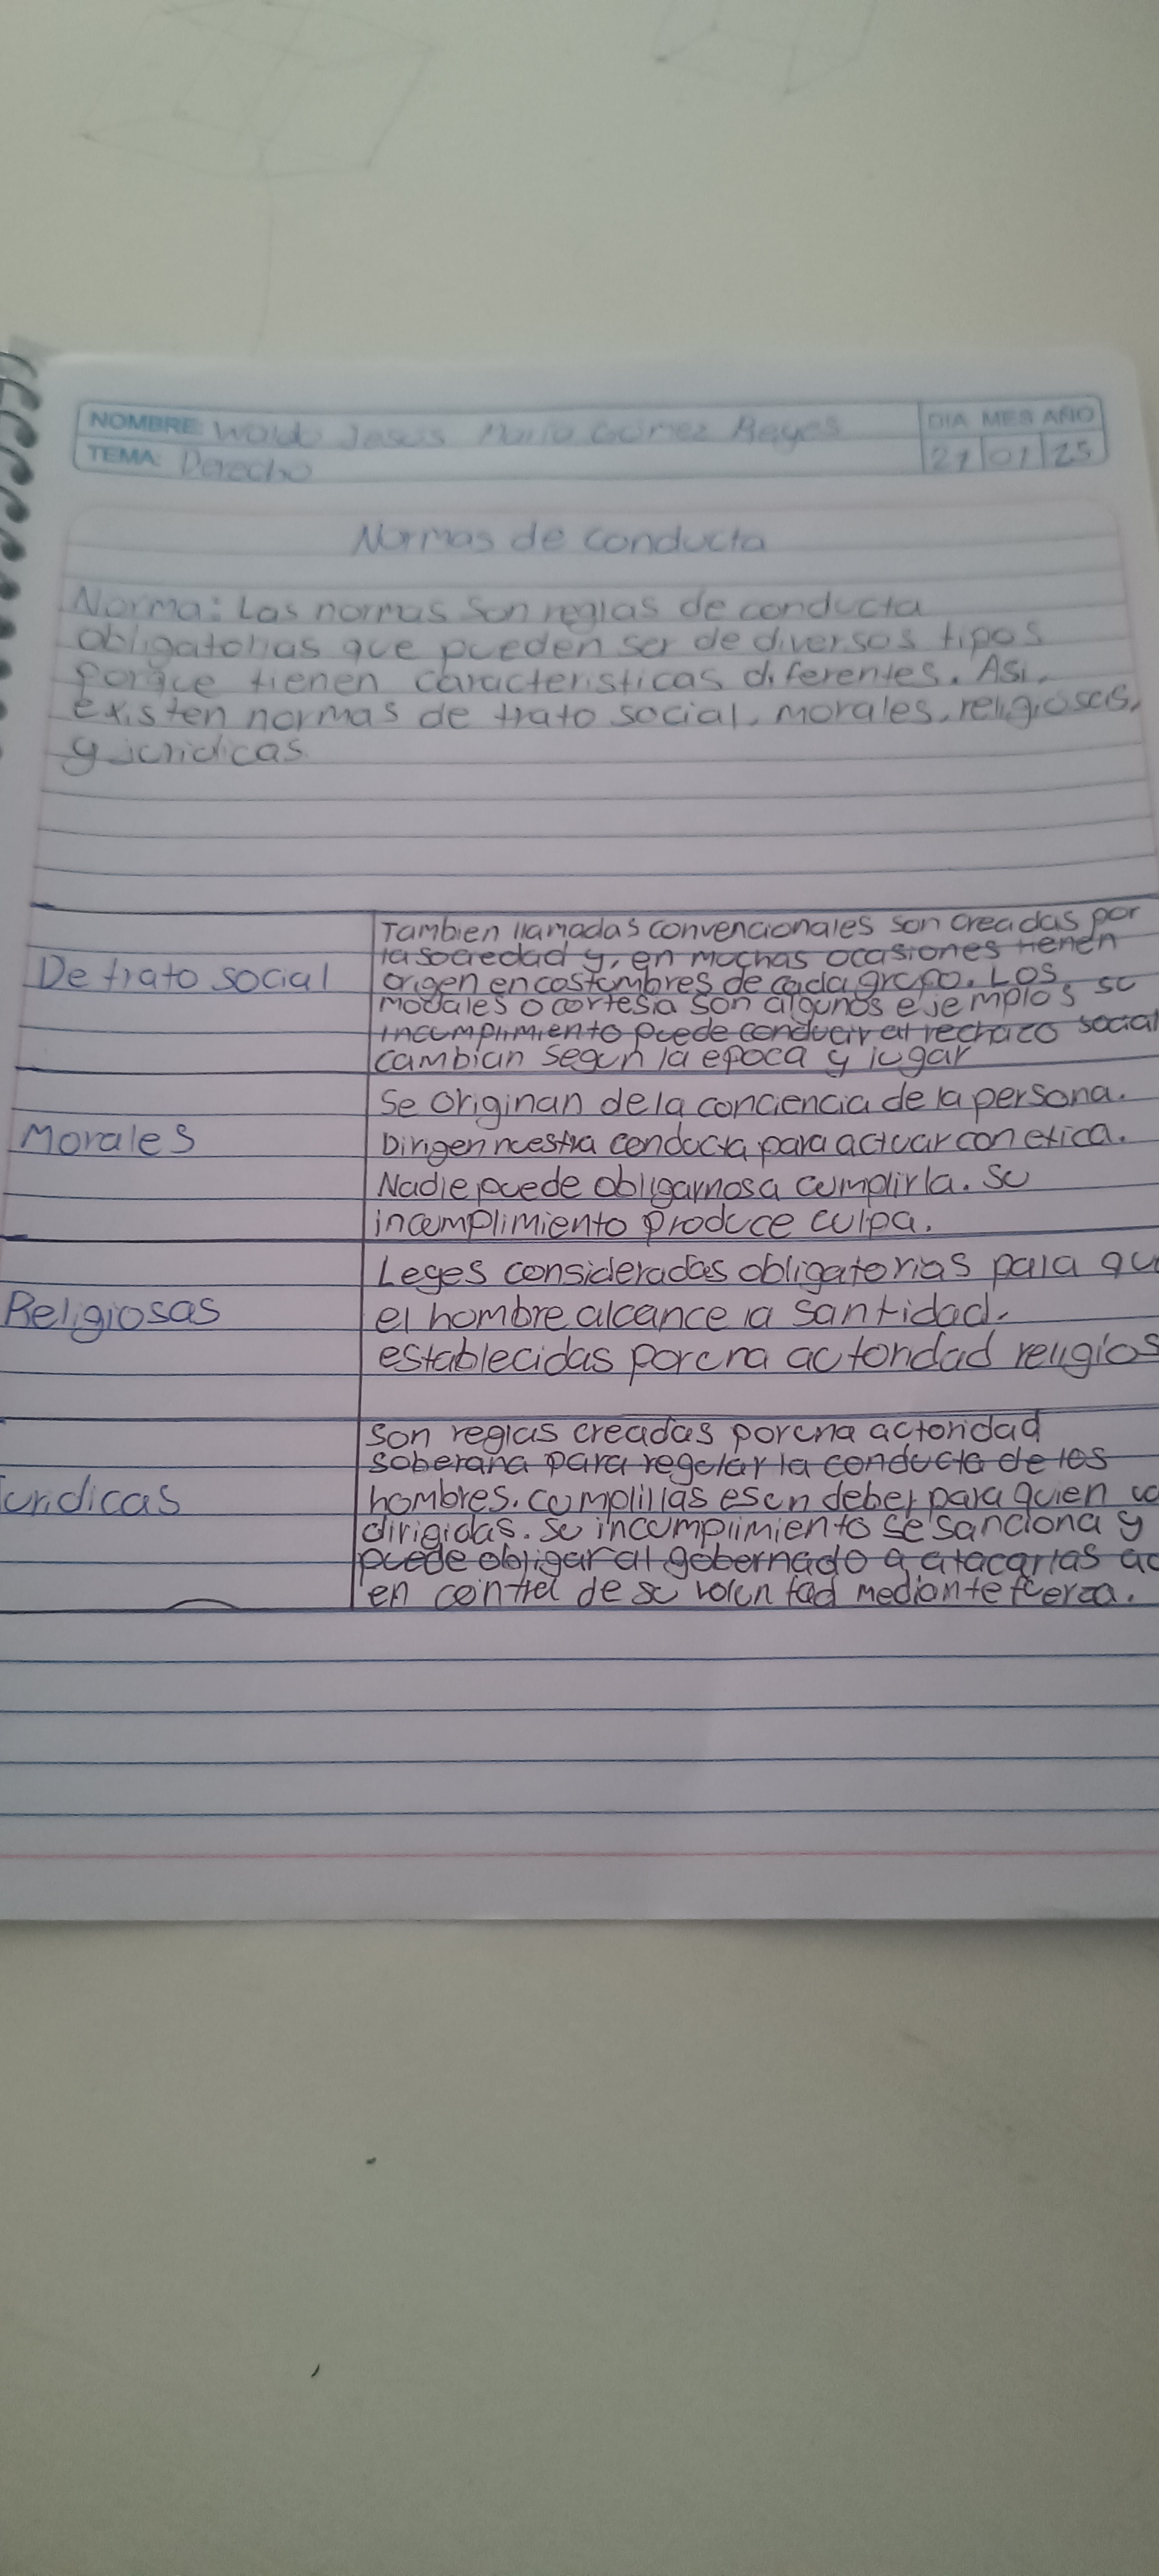 NOMBRE: Waldo Jesus Maria Gómez Reyes
DIA MES AÑO
TEMA: Derecho
21 01 25
Normas de conducta
Norma: Las normas son reglas de conducta
obligatorias que pueden ser de diversos tipos
porque tienen caracteristicas diferentes. Asi,
existen normas de trato social, morales, religiosas,
y juridicas.
De trato social
Tambien llamadas convencionales son creadas por
la sociedad y, en muchas ocasiones tienen
origen en costumbres de cada grupo. Los
modales o cortesia son algunos ejemplos su
incumplimiento puede conducir al rechazo social
cambian segun la epoca y lugar
Morales
Se originan de la conciencia de la persona.
Dirigen nuestra conducta para actuar con etica.
Nadie puede obligarnos a cumplirla. Su
incumplimiento produce culpa.
Religiosas
Leyes consideradas obligatorias para qu
el hombre alcance la santidad.
establecidas por una autoridad religios
uridicas
Son reglas creadas por una autoridad
soberana para regular la conducta de los
hombres. Cumplillas es un deber para quien
dirigidas. Su incumplimiento se sanciona y
puede obligar al gobernado a atacarlas
en contra de su voluntad mediante fuerza.